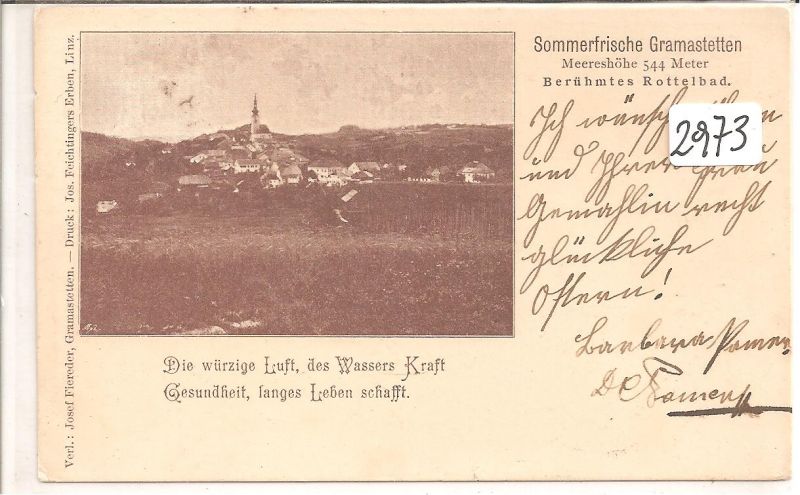 Sommerfrische Gramastetten
Meereshöhe 544 Meter
Berühmtes Rottelbad.
Ich wünsche Ihnen
und Ihrer Frau
Gemahlin recht
glückliche
Ostern!
Barbara
2973
Die würzige Luft, des Wassers Kraft
Gesundheit, langes Leben schafft.
Verl.: Josef Fiereder, Gramastetten. — Druck: Jos. Feichtingers Erben, Linz.